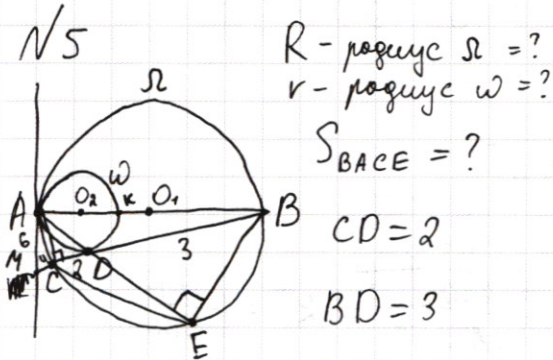 N5
R - радиус Ω = ?
r - радиус ω = ?
S_BACE = ?
CD = 2
BD = 3
Ω
ω
A
O₂
K
O₁
B
6
M
C
2
D
3
E